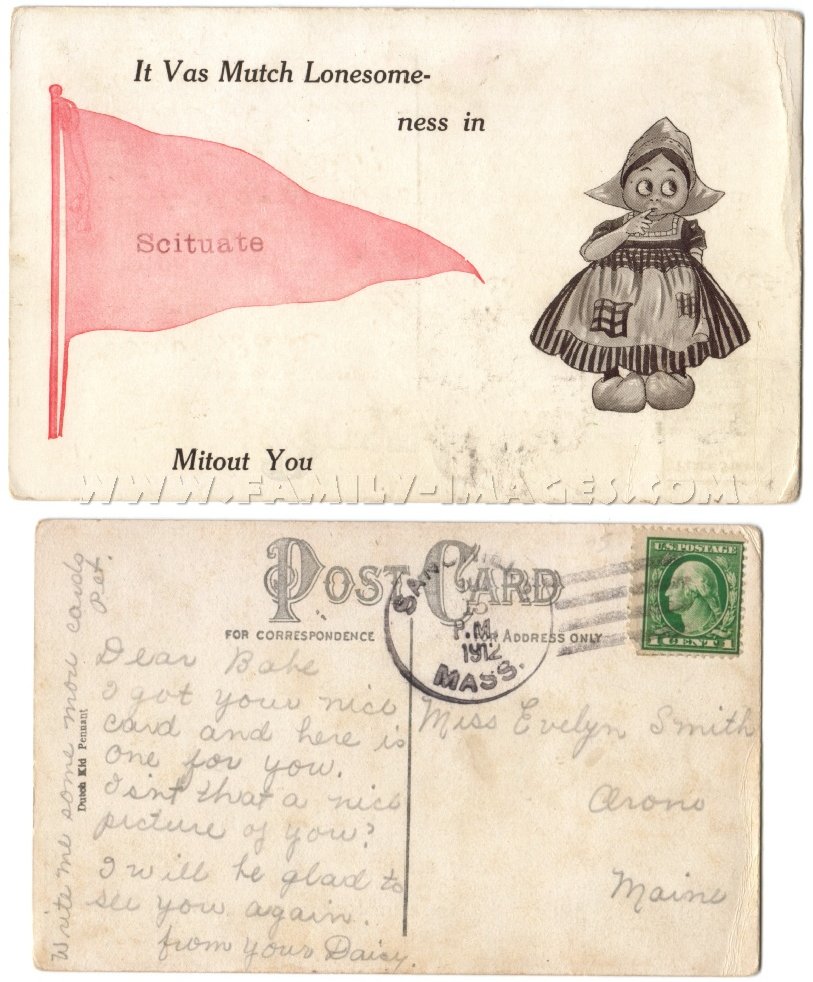 It Vas Mutch Lonesome-
ness in
Scituate
Mitout You
WWW.FAMILY-IMAGES.COM
POST CARD
FOR CORRESPONDENCE
FOR ADDRESS ONLY
P.M.
1912
MASS.
U.S. POSTAGE
1 CENT 1
Dear Babe
I got your nice
card and here is
one for you.
Isn't that a nice
picture of you?
I will be glad to
see you again.
from your Daisy.
Write me some more cards
Pet.
Dutch Kid Pennant
Miss Evelyn Smith
Orono
Maine